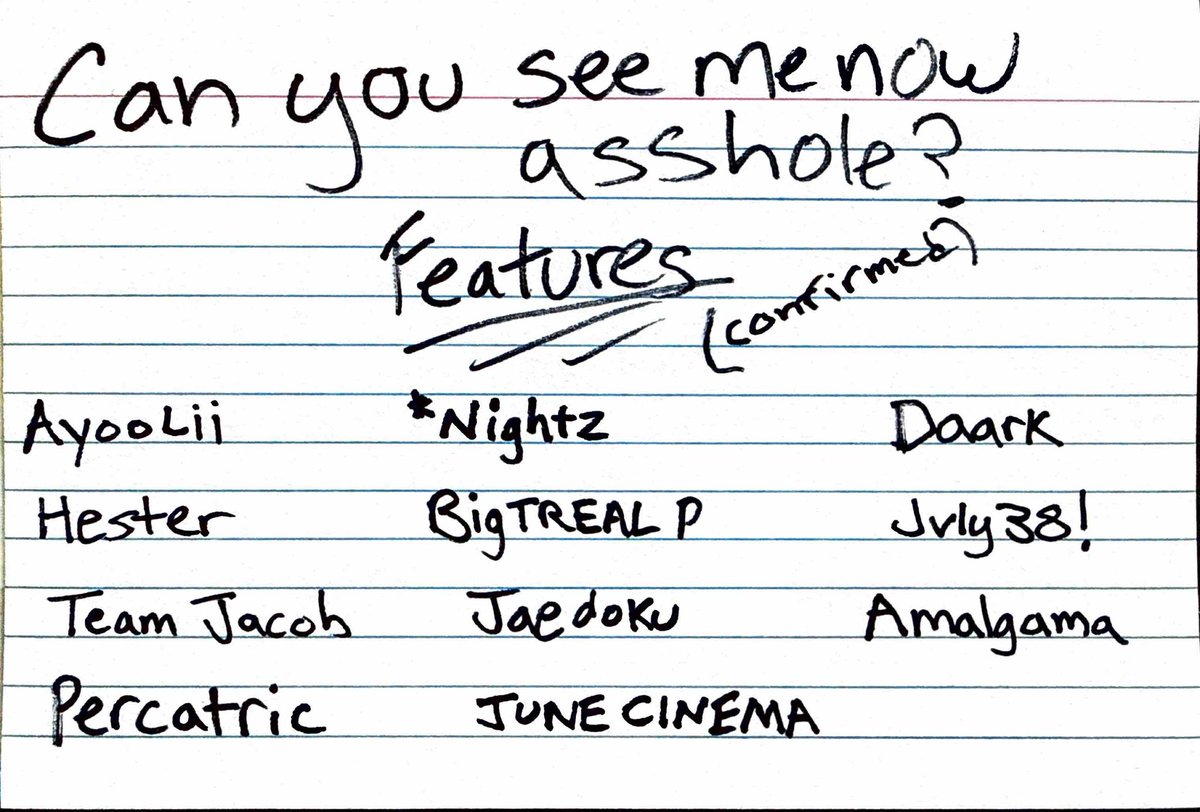 Can you see me now
asshole?
Features
(confirmed)
AyooLii *Nightz Daark
Hester BigTREAL P Jvly38!
Team Jacob Jaedoku Amalgama
Percatric JUNE CINEMA